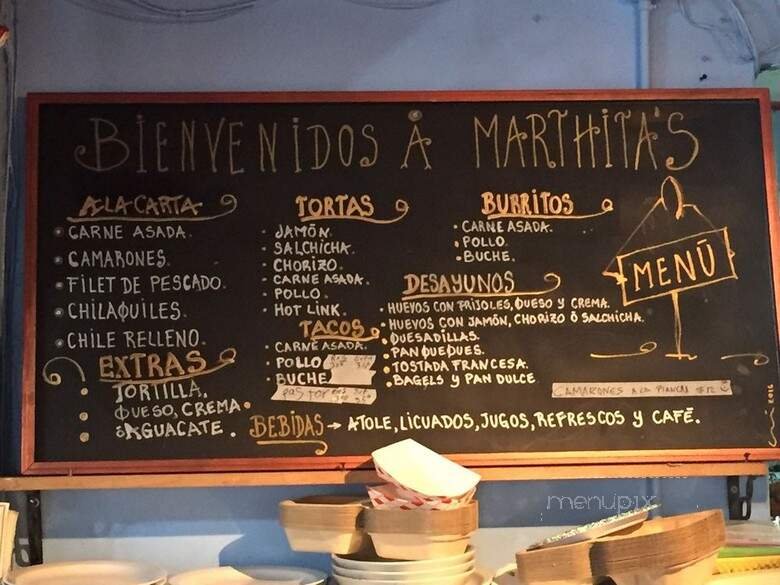 BIENVENIDOS A MARTHITA'S
A LA CARTA
CARNE ASADA.
CAMARONES.
FILET DE PESCADO.
CHILAQUILES.
CHILE RELLENO.
EXTRAS
TORTILLA.
QUESO, CREMA
ó AGUACATE.
TORTAS
JAMÓN.
SALCHICHA.
CHORIZO.
CARNE ASADA.
POLLO.
HOT LINK.
TACOS
CARNE ASADA.
POLLO
BUCHE
PASTOR
BURRITOS
CARNE ASADA.
POLLO.
BUCHE.
DESAYUNOS
HUEVOS CON FRIJOLES, QUESO Y CREMA.
HUEVOS CON JAMÓN, CHORIZO ó SALCHICHA.
QUESADILLAS.
PANQUEQUES.
TOSTADA FRANCESA.
BAGELS Y PAN DULCE
MENÚ
CAMARONES A LA PLANCHA $12
BEBIDAS → ATOLE, LICUADOS, JUGOS, REFRESCOS Y CAFÉ.
menupix